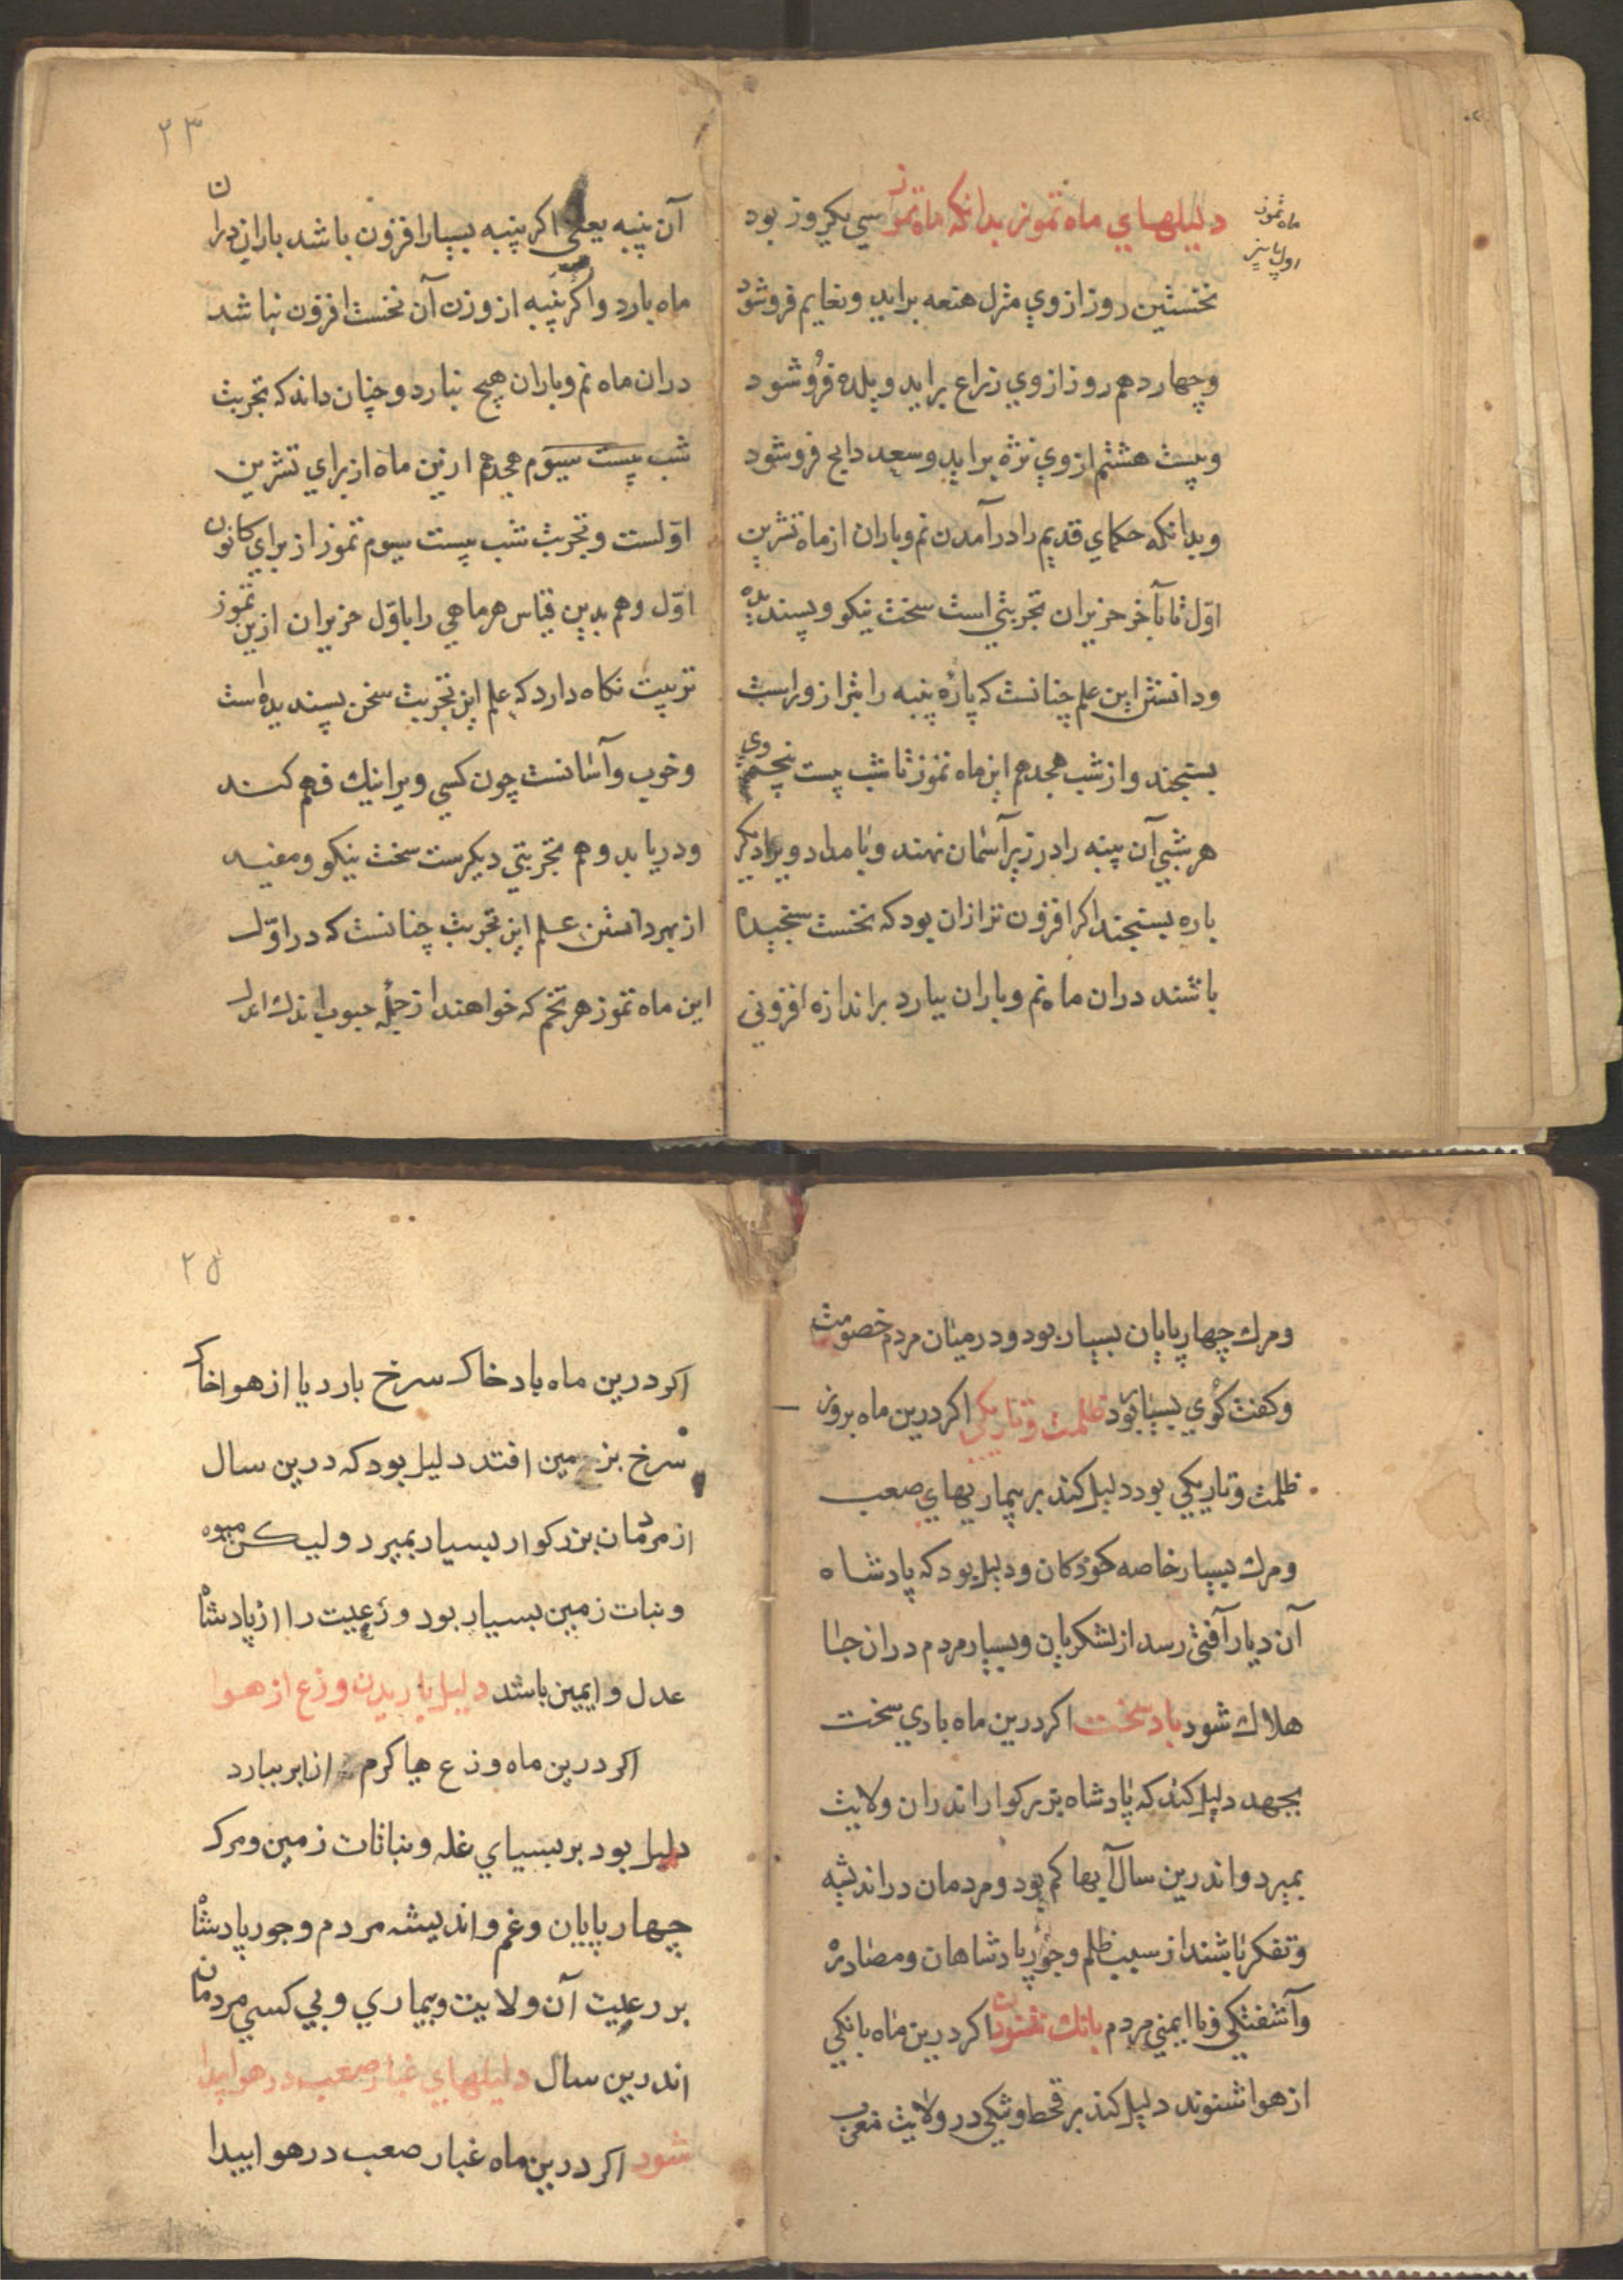 دلیلهاي ماه تموز بدانکه ماه تموز سي یکروز بود
ماه تموز
اول پاییز
نخستین روز از وي منزل هنعه براید و نعایم فروشود
وچهاردهم روز از وي ذراع براید و بلده فروشود
وبیست هشتم از وي نثره براید وسعد ذابح فروشود
وبدانکه حکماي قدیم را درآمدن نم وباران از ماه تشرین
اوّل تا بآخر حزیران تجربتي است سخت نیکو وپسندیده
ودانستن این علم چنانست که پارهٔ پنبه را بترازو راست
بسنجند واز شب هجدهم این ماه تموز تا شب بیست پنجم وي
هر شبي آن پنبه را در زیر آسمان نهند وبامداد ویرا دیکر
باره بسنجند اکر افزون تر ازان بود که نخست سنجیده
باشند دران ماه نم وباران ببارد بر اندازه افزوني
۲۳
آن پنبه یعني اکر پنبه بسیار افزون باشد باران دران
ماه بارد واکر پنبه از وزن آن نخست افزون نباشد
دران ماه نم وباران هیچ نبارد وچنان داند که تجربت
شب بیست سیوم هجدهم ازین ماه از براي تشرین
اوّلست وتجربت شب بیست سیوم تموز از براي کانون
اوّل وهم بدین قیاس هر ماهي را باوّل حزیران ازین تموز
ترتیب نکاه دارد که علم این تجربت سخن پسندیده است
وخوب وآسانست چون کسي ویرا نیك فهم کند
ودریابد وهم تجربتي دیکرست سخت نیکو ومفید
از بهر دانستن علم این تجربت چنانست که در اوّل
این ماه تموز هر تخم که خواهند از جملهٔ حبوب اندك اندك
ومرك چهارپایان بسیار بود ودر میان مردم خصومت
وکفت کوي بسیار بود ظلمت وتاریکي اکر درین ماه بروز
ظلمت وتاریکي بود دلیل کند بر بیماریهاي صعب
ومرك بسیار خاصه کودکان ودلیل بود که پادشاه
آن دیار آفتي رسد از لشکریان وبسیار مردم دران جا
هلاك شود باد سخت اکر درین ماه بادي سخت
بجهد دلیل کند که پادشاه بزرکوار اندران ولایت
بمیرد واندرین سال آبها کم بود ومردمان در اندیشه
وتفکر باشند از سبب ظلم وجور پادشاهان ومصادره
وآشفتکي ونا ایمني مردم بانك شنودن اکر درین ماه بانکي
از هوا شنوند دلیل کند بر قحط وتنکي در ولایت مغرب
۲۵
اکر درین ماه باد خاك سرخ بارد یا از هوا خاك
سرخ بزمین افتد دلیل بود که درین سال
از مردمان بزرکوار بسیار بمیرد ولیکن میوه
ونبات زمین بسیار بود ورعیت را از پادشاه
عدل وایمین باشد دلیل باریدن وزع از هوا
اکر درین ماه وزع یا کرم از ابر ببارد
دلیل بود بر بسیاي غله ونباتات زمین ومرك
چهارپایان وغم واندیشه مردم وجور پادشاه
بر رعیت آن ولایت وبیماري وبي کسي مردمان
اندرین سال دلیلهاي غبار صعب در هوا پیدا
شود اکر درین ماه غبار صعب در هوا پیدا